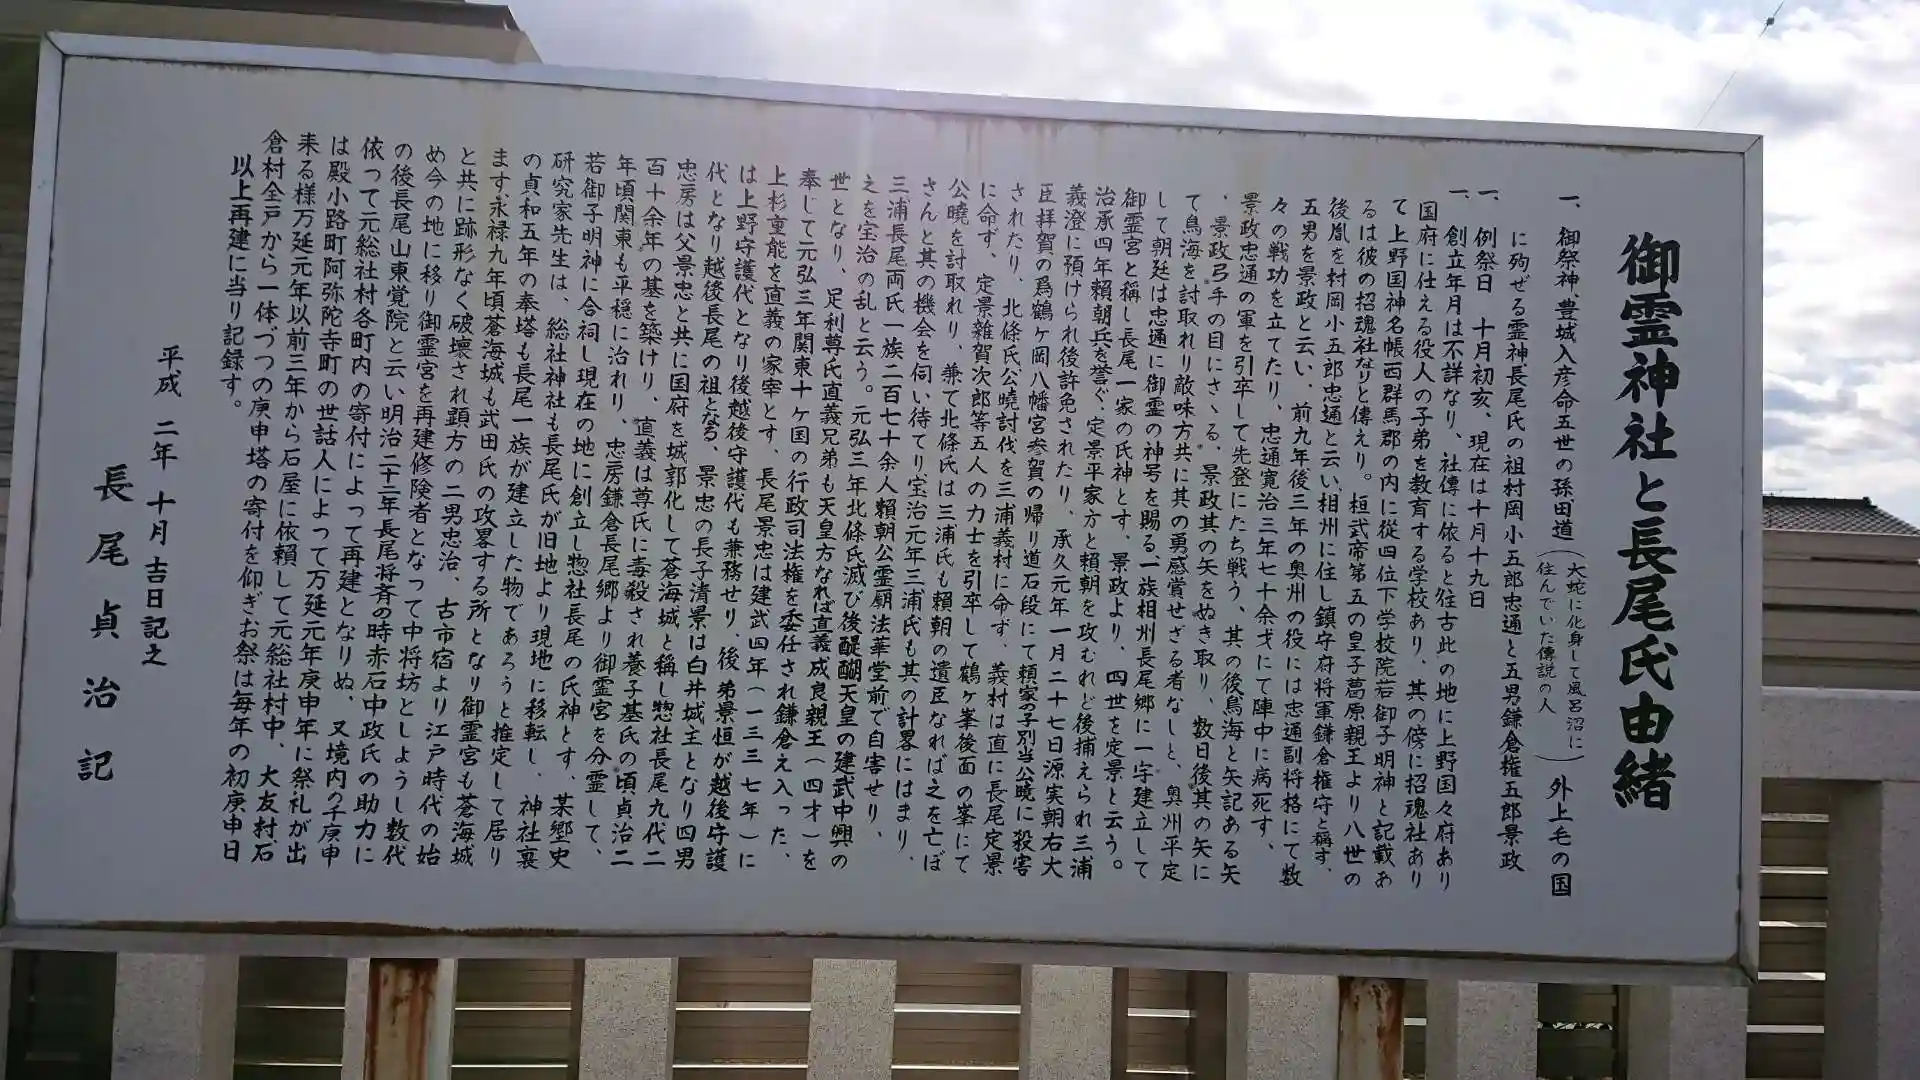 御霊神社と長尾氏由緒
一、御祭神、豊城入彦命五世の孫田道(大蛇に化身して風呂沼に住んでいた傳説の人)外上毛の国
に殉ぜる霊神長尾氏の祖村岡小五郎忠通と五男鎌倉権五郎景政
一、例祭日 十月初亥、現在は十月十九日
一、創立年月は不詳なり、社傳に依ると往古此の地に上野国々府あり
国府に仕える役人の子弟を教育する学校あり、其の傍に招魂社あり
て上野国神名帳西群馬郡の内に従四位下学校院若御子明神と記載あ
るは彼の招魂社なりと傳えり。桓武帝第五の皇子葛原親王より八世の
後胤を村岡小五郎忠通と云い相州に住し鎮守府将軍鎌倉権守と稱す、
五男を景政と云い、前九年後三年の奥州の役には忠通副将格にて数
々の戦功を立てたり、忠通寛治三年七十余才にて陣中に病死す、
景政忠通の軍を引卒して先登にたち戦う、其の後鳥海と矢記ある矢
、景政弓手の目にさゝる、景政其の矢をぬき取り、数日後其の矢に
て鳥海を討取れり敵味方共に其の勇感賞せざる者なしと、奥州平定
して朝廷は忠通に御霊の神号を賜る一族相州長尾郷に一宇建立して
御霊宮と稱し長尾一家の氏神とす、景政より、四世を定景と云う。
治承四年頼朝兵を誉ぐ、定景平家方と頼朝を攻むれど後捕えられ三浦
義澄に預けられ後許免されたり、承久元年一月二十七日源実朝右大
臣拝賀の爲鶴ヶ岡八幡宮参賀の帰り道石段にて頼家の子別当公暁に殺害
されたり、北條氏公暁討伐を三浦義村に命ず、義村は直に長尾定景
に命ず、定景雑賀次郎等五人の力士を引卒して鶴ヶ峯後面の峯にて
公暁を討取れり、兼て北條氏は三浦氏も頼朝の遺臣なれば之を亡ぼ
さんと其の機会を伺い待てり宝治元年三浦氏も其の計畧にはまり、
三浦長尾両氏一族二百七十余人頼朝公霊廟法華堂前で自害せり、
之を宝治の乱と云う。元弘三年北條氏滅び後醍醐天皇の建武中興の
世となり、足利尊氏直義兄弟も天皇方なれば直義成良親王(四才)を
奉じて元弘三年関東十ヶ国の行政司法権を委任され鎌倉え入った、
上杉重能を直義の家宰とす、長尾景忠は建武四年(一三三七年)に
は上野守護代となり後越後守護代も兼務せり、後弟景恒が越後守護
代となり越後長尾の祖となる、景忠の長子清景は白井城主となり四男
忠房は父景忠と共に国府を城郭化して蒼海城と稱し惣社長尾九代二
百十余年の基を築けり、直義は尊氏に毒殺され養子基氏の頃貞治二
年頃関東も平穏に治れり、忠房鎌倉長尾郷より御霊宮を分霊して、
若御子明神に合祠し現在の地に創立し惣社長尾の氏神とす、某郷史
研究家先生は、総社神社も長尾氏が旧地より現地に移転し、神社裏
の貞和五年の奉塔も長尾一族が建立した物であろうと推定して居り
ます、永禄九年頃蒼海城も武田氏の攻畧する所となり御霊宮も蒼海城
と共に跡形なく破壊され顕方の二男忠治、古市宿より江戸時代の始
め今の地に移り御霊宮を再建修険者となって中将坊としようし数代
の後長尾山東覚院と云い明治二十二年長尾将斉の時赤石中政氏の助力に
依って元総社村各町内の寄付によって再建となりぬ、又境内の千庚申
は殿小路町阿弥陀寺町の世話人によって万延元年庚申年に祭礼が出
来る様万延元年以前三年から石屋に依頼して元総社村中、大友村、石
倉村全戸から一体づつの庚申塔の寄付を仰ぎお祭は毎年の初庚申日
以上再建に当り記録す。
平成二年十月吉日記之
長尾貞治記